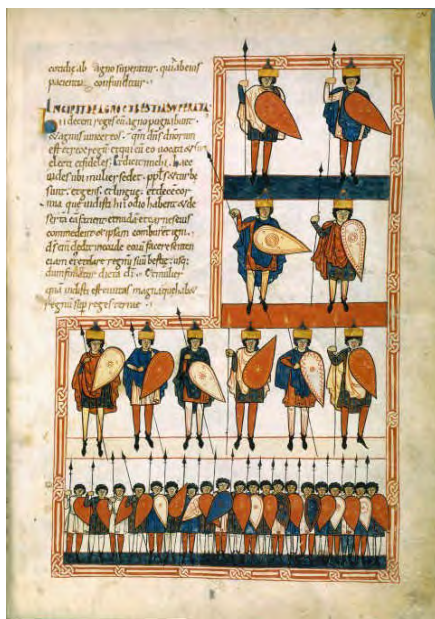 cotidie ab agno superatur. quia
paciencia confunditur.
INCIPIT DE AGNO
decem reges cū agno pugnabunt
et agnus uincet eos. qm̄ dn̄s dn̄orum
est et rex regū et qui cū eo uocati
electi et fideles. Et dicit mihi. hec
uides ubi mulier sedet. ppłi et turbe
sunt. et gens. et lingue. et decē cor
nua que uidisti hii odio habent et de
serta eā facient et nudā et carnes eius
comedent et ipsam comburent igni.
dš enī dedit in corde eoru facere senten
ciam et dare regnū suū bestię. usq;
dum finiatur dicta dī. Et mulier
quā uidisti est ciuitas magna que habet
regnū sup reges terre